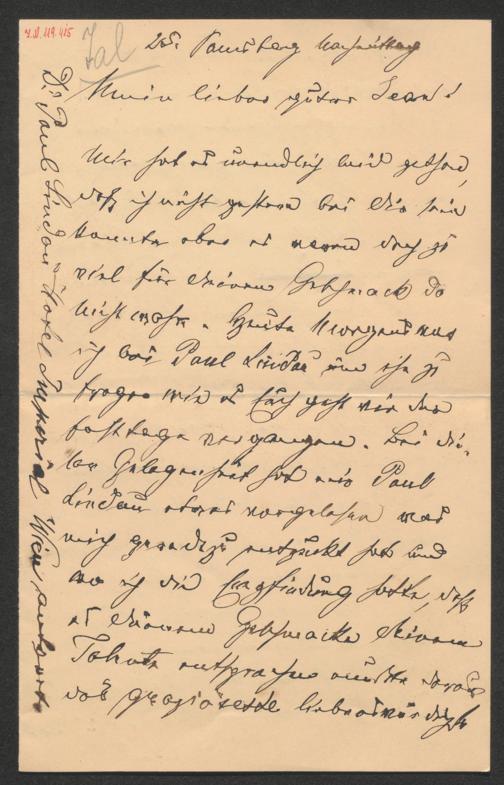 J.N. 119.415
Zal
25. Samstag Nachmittag
Mein lieber guter Jean!
Mir hat es unendlich leid gethan,
daß ich nicht gestern bei Dir sein
konnte aber es waren doch zu
viel für Deinen Geschmack da
nicht wahr. Heute Morgens war
ich bei Paul Lindau um ihn zu
fragen wie es ihm geht wie die
Festtage vergangen. Bei die-
ser Gelegenheit hat mir Paul
Lindau etwas vorgelesen was
mich geradezu entzückt hat und
wo ich die Empfindung hatte, daß
es Deinem Geschmacke Deinem
Talente entsprechen müßte
das graziöseste liebenswürdigste
Dr. Paul Lindau Hotel Imperial Wien